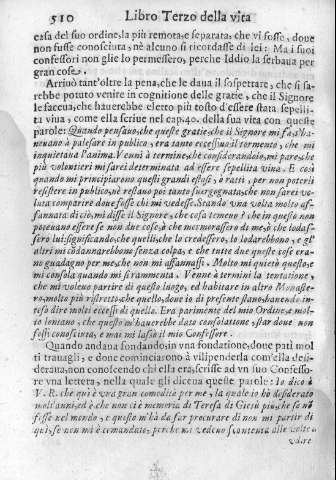 510 Libro Terzo della vita
casa del suo ordine, la più remota, e separata, che vi fosse, doue
non fusse conosciuta, nè alcuno si ricordasse di lei: Ma i suoi
confessori non glie lo permessero, perche Iddio la serbaua per
gran cose.
Arriuò tant'oltre la pena, che le daua il sospettare, che si sa-
rebbe potuto venire in cognitione delle gratie, che il Signore
le faceua, che hauerebbe eletto più tosto d'essere stata sepelli-
ta viua, come ella scriue nel cap. 40. della sua vita con queste
parole: Quando pensauo, che queste gratie, che il Signore mi fà, s'ha-
ueuano à palesare in publico, era tanto eccessiuo il tormento, che mi
inquietaua l'anima. Venni à termine, che considerandoio, mi pare, che
più volontieri mi sarei determinata ad essere sepellita viua. E così
quando mi principiarono questi grandi estasi, ò ratti, per non poterli
resistere in publico, nè restauo poi tanto suergognata, che non sarei vo-
luta comparire doue fosse chi mi vedesse. Stando vna volta molto af-
fannata di ciò, mi disse il Signore, che cosa temeuo? che in questo non
poteuano essere se non due cose, ò che mormorassero di me, ò che lodas-
sero lui: significando, che quelli, che lo credessero, lo lodarebbono, e gl'
altri mi cõdannarebbono senza colpa, e che tutte due queste cose era-
no guadagno per me, che non mi affannassi. Molto mi quietò questo, e
mi consola quando mi si rammenta. Venne à termini la tentatione,
che mi voleuo partire di questo luogo, ed habitare in altro Monaste-
ro, molto più ristretto, che quello, doue io di presente stauo, hauendo in-
teso dire molti eccessi di quello. Era parimente del mio Ordine, e mol-
to lontano, che questo m'hauerebbe dato consolatione, star doue non
fossi conosciuta, e mai mi lasciò il mio Confessore.
Quando andaua fondando, in vna fondatione, doue patì mol-
ti trauagli, e doue cominciarono à vilipenderla com'ella desi-
deraua, non conoscendo chi ella era, scrisse ad vn suo Confesso-
re vna lettera, nella quale gli diceua queste parole: Io dico à
V. R. che qui è vna gran commodità per me, la quale io hò desiderato
molt'anni, ed è che non ci è memoria di Teresa di Giesù più, che se nõ
fosse nel mondo, e questo m'hà da far procurare di non mi partir di
quì, se non mi è comandato, perche mi vedeuo scontenta alle volte
udire